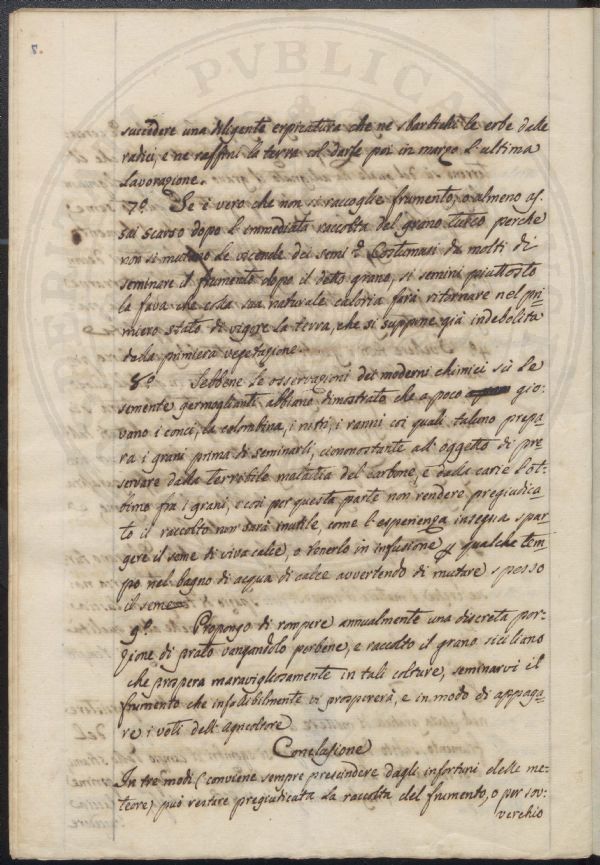 7.
succedere una diligente erpicatura che ne sbarbichi le erbe dalle
radici, e ne raffini la terra al darse poi in marzo l'ultima
lavorazione.
7.º Se è vero che non si raccoglie frumento, o almeno as-
sai scarso dopo l'immediata raccolta del grano turco perche
non si mutano le vicende dei semi? Costumasi da molti di
seminare il frumento dopo il detto grano, si semini piuttosto
la fava che colla sua naturale caloria farà ritornare nel pri-
miero stato di vigore la terra, che si suppone già indebolita
dalla primiera vegetazione.
8.º Sebbene le osservazioni dei moderni chimici sù le
semente germoglianti abbiano dimostrato che a poco gio-
vano i conci, la colombina, i nitri, i ranni coi quali taluno prepa-
ra i grani prima di seminarli, ciononostante all'oggetto di pre-
servare dalla terribile malattia del carbone, e dalla carie l'ot-
timo fra i grani, e così per questa parte non rendere pregiudica-
to il raccolto non sarà inutile, come l'esperienza insegna spar-
gere il seme di viva calce, o tenerlo in infusione p qualche tem-
po nel bagno di acqua di calce avvertendo di mutare spesso
il seme
9.º Propongo di rompere annualmente una discreta por-
zione di prato vangandolo perbene, e raccolto il grano siciliano
che prospera maravigliosamente in tali colture, seminarvi il
frumento che infallibilmente vi prospererà, e in modo di appaga-
re i voti dell'Agricoltore
Conclusione
In tre modi (conviene sempre prescindere dagli infortuni delle me-
teore) può restare pregiudicata la raccolta del frumento, o per sov-
verchio
PVBLICA